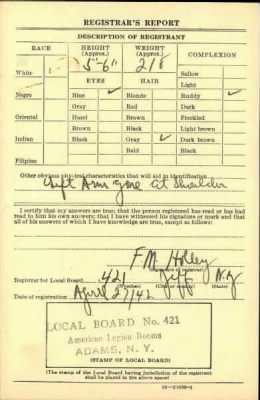 REGISTRAR'S REPORT
DESCRIPTION OF REGISTRANT
RACE HEIGHT (Approx.) WEIGHT (Approx.) COMPLEXION
5-6" 218
White ✓ Sallow
EYES HAIR Light
Negro Blue ✓ Blonde Ruddy ✓
Gray Red Dark
Oriental Hazel Brown Freckled
Brown Black Light brown
Indian Black Gray ✓ Dark brown
Bald Black
Filipino
Other obvious physical characteristics that will aid in identification
Left Arm gone at Shoulder
I certify that my answers are true; that the person registered has read or has had
read to him his own answers; that I have witnessed his signature or mark and that
all of his answers of which I have knowledge are true, except as follows:
F M Holley
(Signature of registrar)
Registrar for Local Board 421 Jeff N.Y
(Number) (City or county) (State)
Date of registration April 27/42
LOCAL BOARD No. 421
American Legion Rooms
ADAMS, N. Y.
(STAMP OF LOCAL BOARD)
(The stamp of the Local Board having jurisdiction of the registrant
shall be placed in the above space)